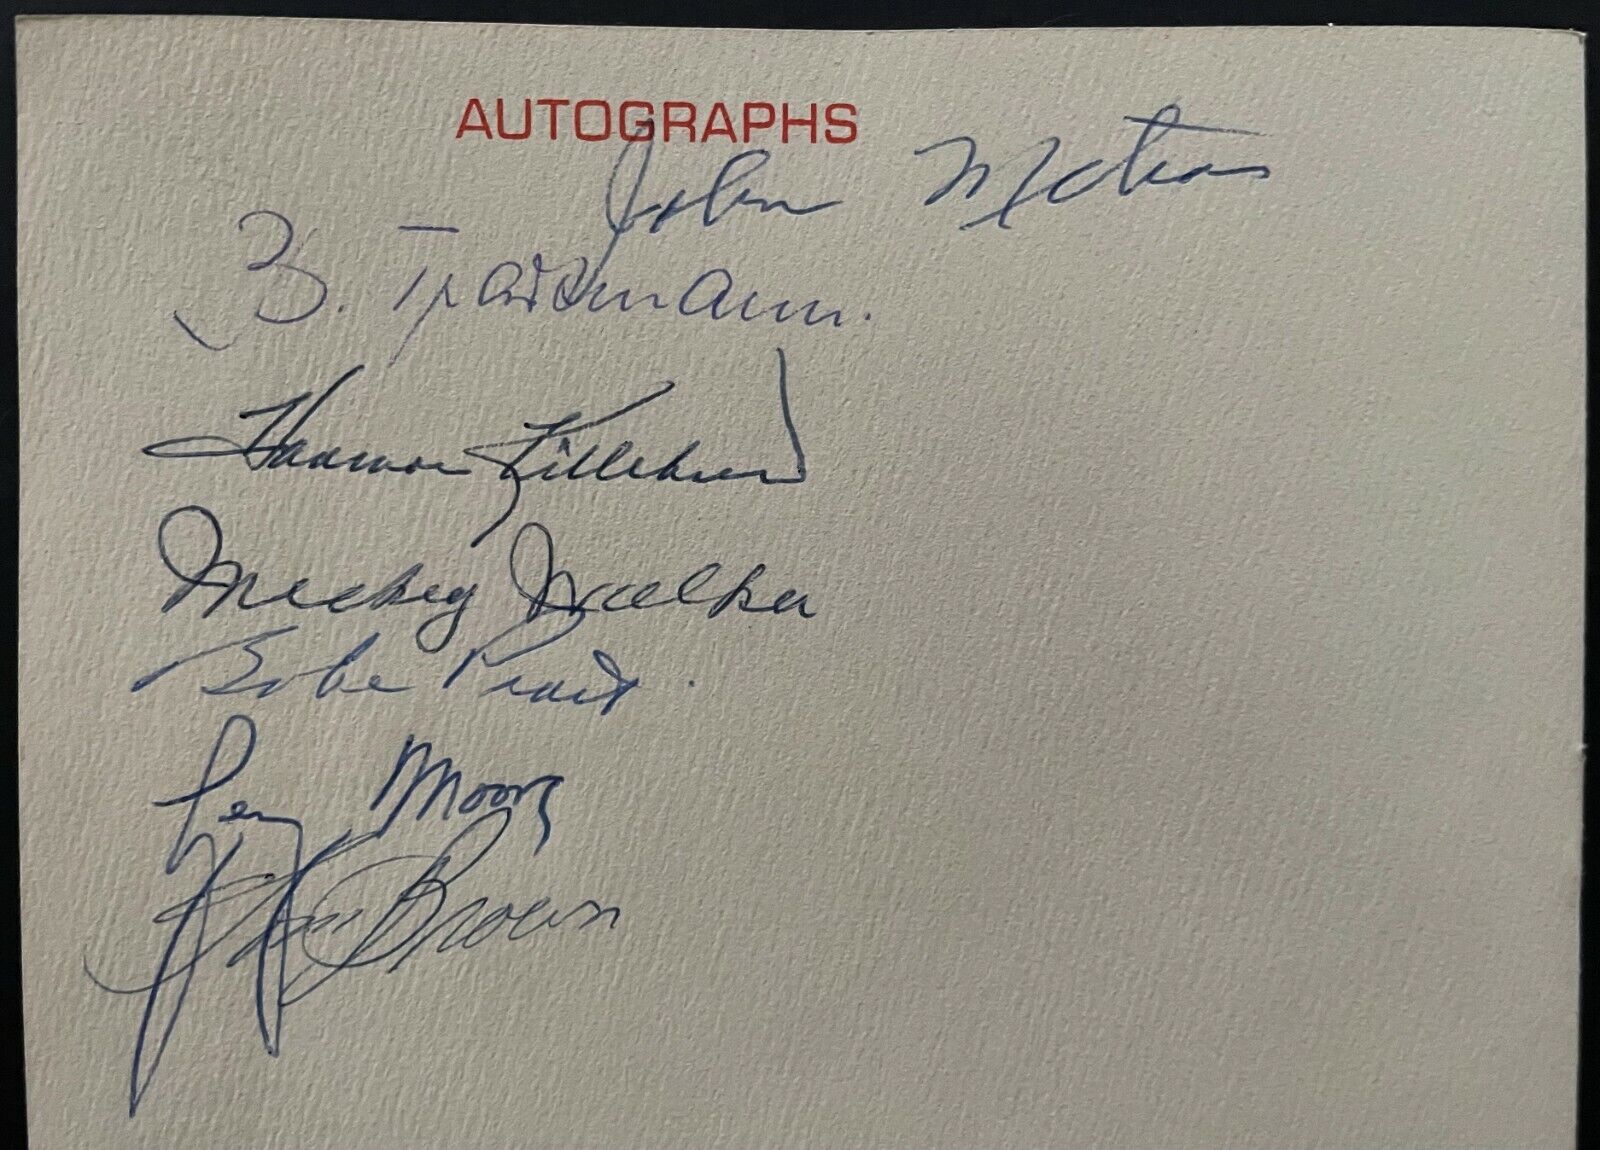 AUTOGRAPHS
John
B. Trautmann.
Harmon Killebrew
Mickey Walker
Babe Pratt.
Lenny Moore
Brown